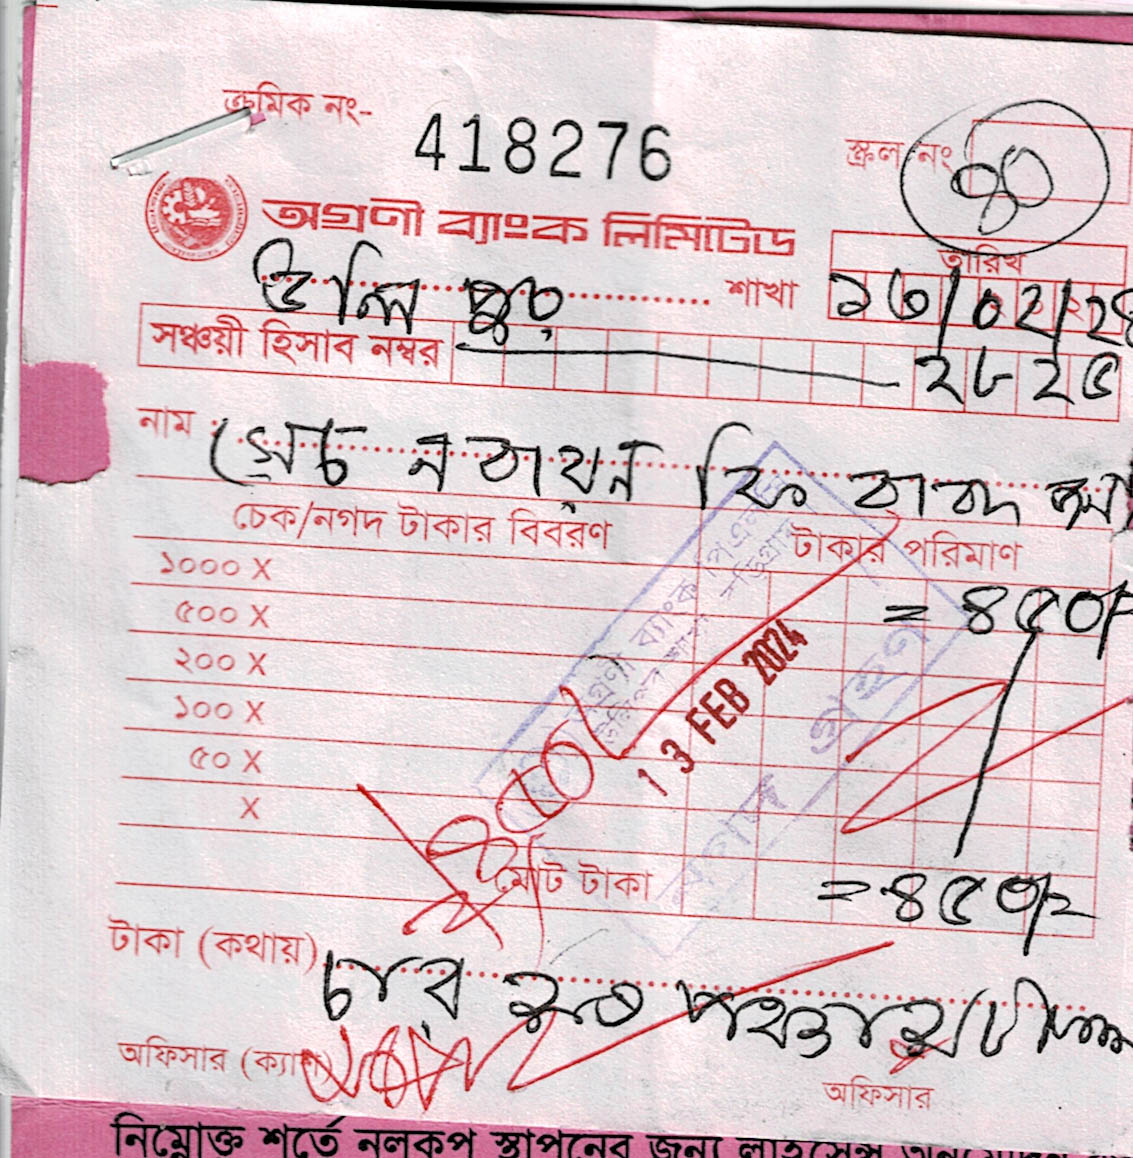 ক্রমিক নং-
418276
স্ক্রল নং
৪০
অগ্রণী ব্যাংক লিমিটেড
তারিখ
উলিপুর শাখা
১৩/০২/২৪
সঞ্চয়ী হিসাব নম্বর ২৮২৫
নাম সেচ নবায়ন ফি বাবদ জমা
চেক/নগদ টাকার বিবরণ
টাকার পরিমাণ
১০০০ X
= ৪৫০/-
৫০০ X
২০০ X
১০০ X
৫০ X
X
13 FEB 2024
অগ্রণী ব্যাংক পিএলসি
নগদ গ্রহণ
মোট টাকা
= ৪৫০/-
টাকা (কথায়) চার শত পঞ্চাশ টাকা
অফিসার (ক্যাশ)
অফিসার
নিম্নোক্ত শর্তে নলকূপ স্থাপনের জন্য লাইসেন্স